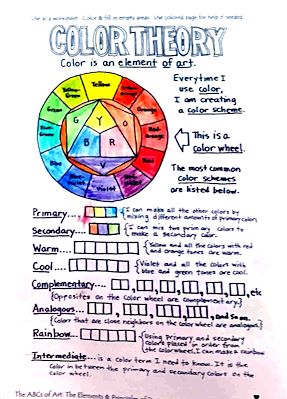 Use as a worksheet. Color & fill in empty areas. Use colored page for help if needed.
COLOR THEORY
Color is an element of art.
Everytime I
use color,
I am creating
a color scheme.
This is a
color wheel.
The most common
color schemes
are listed below.
Yellow
Yellow-Orange
Orange
Red-Orange
Red
Red-Violet
Violet
Blue-Violet
Blue
Blue-Green
Green
Yellow-Green
Y
O
R
V
B
G
Primary.... {I can make all the other colors by
mixing different amounts of primary colors.
Secondary.... {I can mix two primary colors to
make a secondary color.
Warm.... {Yellow and all the colors with red
and orange tones are warm.
Cool.... {Violet and all the colors with
blue and green tones are cool.
Complementary.... , , , , , etc
{Opposites on the color wheel are complementary.}
Analogous... , , , and so on.
{Colors that are close neighbors on the color wheel are analogous.}
Rainbow... {Using primary and secondary
colors placed in order from
the color wheel, I can make a rainbow
Intermediate... is a color term I need to know. It is the
color in between the primary and secondary colors on the
color wheel.
The ABCs of Art: The Elements & Principles of